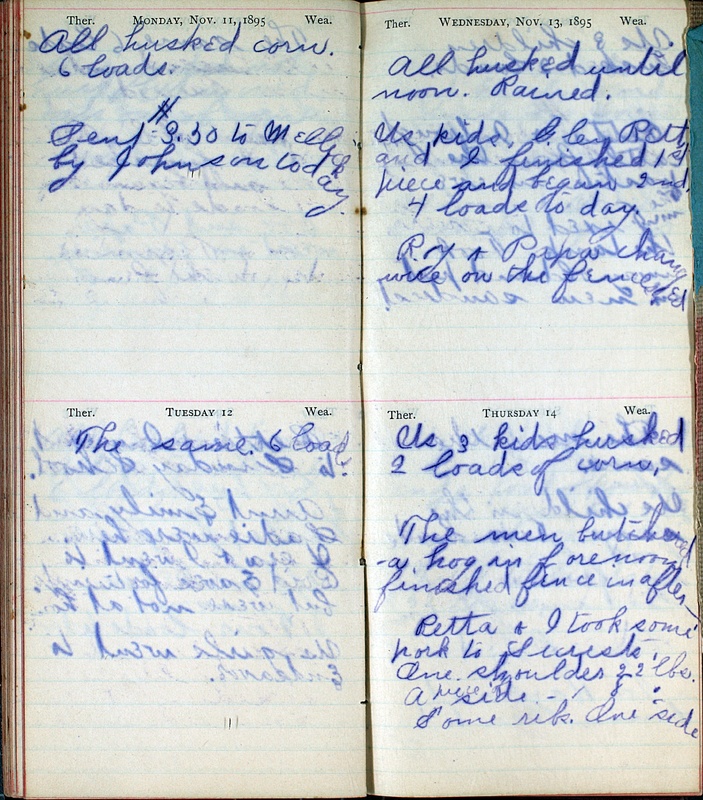 Ther. MONDAY, NOV. 11, 1895 Wea.
All husked corn.
6 loads.
Sent $3.30 to
by Johnson today.
Ther. TUESDAY 12 Wea.
The same. 6 loads.
Ther. WEDNESDAY, NOV. 13, 1895 Wea.
All husked until
noon. Rained.
Us kids, Glen Retta
and I finished 1st
piece and began 2nd.
4 loads to day.
Roy & Papa changed
wire on the fence
Ther. THURSDAY 14 Wea.
Us 3 kids husked
2 loads of corn,
The men butchered
a hog in forenoon
finished fence in after-
Retta & I took some
pork to
One shoulder 22 lbs.
A piece of side -
Some ribs. One side